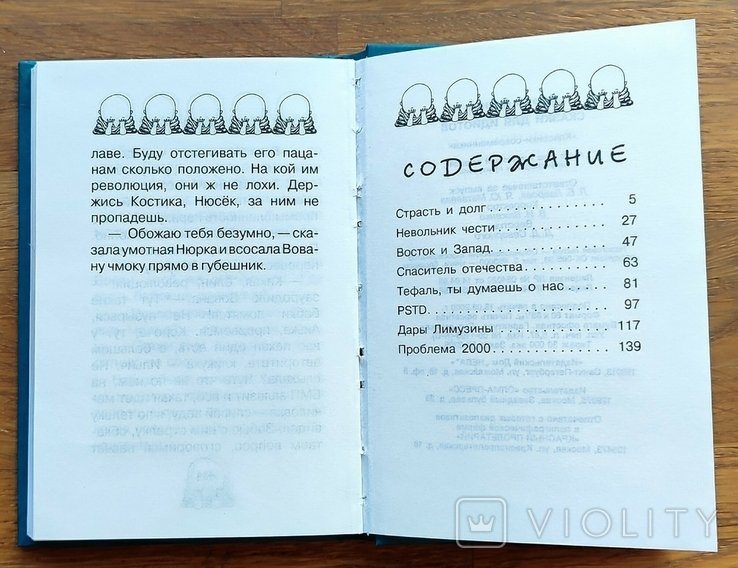 лаве. Буду отстегивать его паца-
нам сколько положено. На кой им
революция, они ж не лохи. Дер-
жись Костика, Нюсёк, за ним не
пропадешь.
— Обожаю тебя безумно, — ска-
зала умотная Нюрка и всосала Вова-
ну чмоку прямо в губешник.
СОДЕРЖАНИЕ
Страсть и долг 5
Невольник чести 27
Восток и Запад 47
Спаситель отечества 63
Тефаль, ты думаешь о нас 81
PSTD 97
Дары Лимузины 117
Проблема 2000 139
VIOLITY